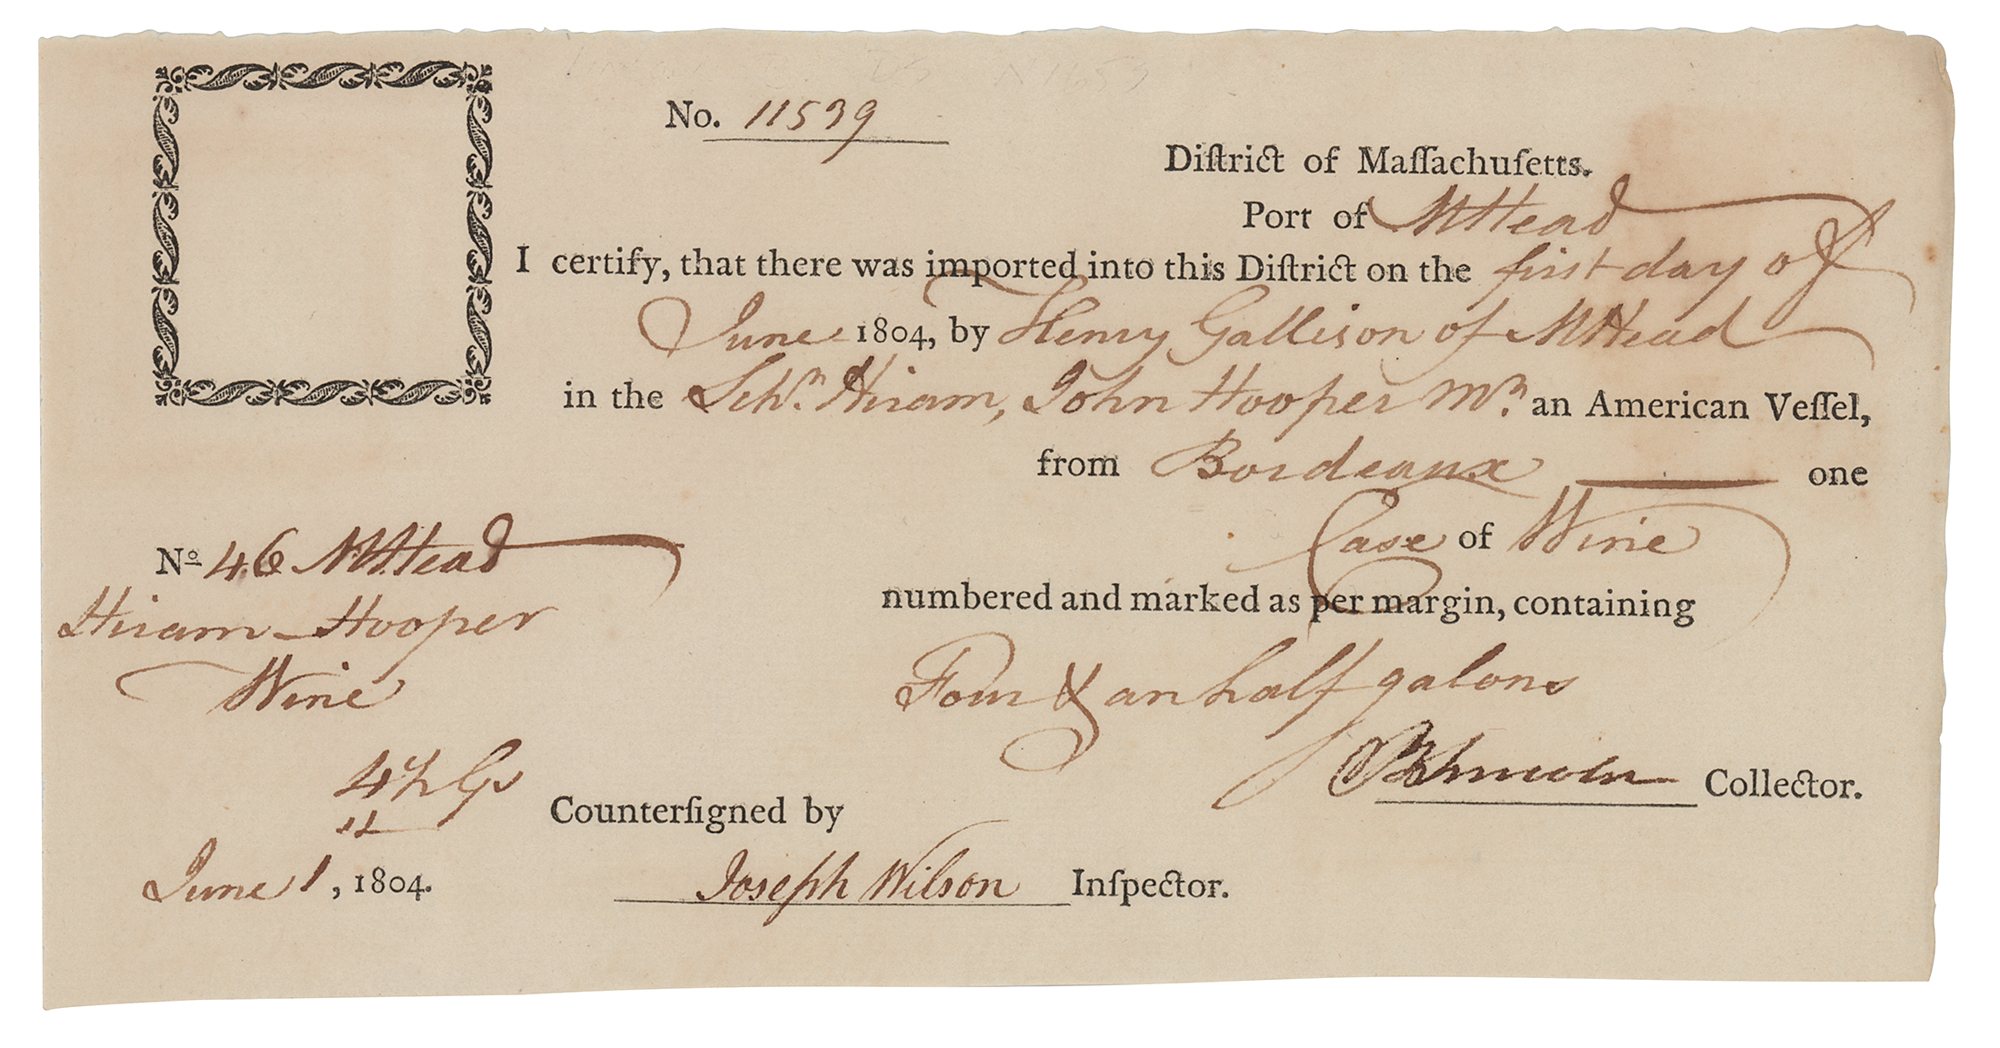 No. 11539
Diſtrict of Maſſachuſetts.
Port of MHead
I certify, that there was imported into this Diſtrict on the first day of
June 1804, by Henry Gallison of MHead
in the Schr. Hiram, John Hooper Mr. an American Veſſel,
from Bordeaux one
Case of Wine
numbered and marked as per margin, containing
Four & an half galons
BLincoln Collector.
No 46 MHead
Hiram - Hooper
Wine
4½ Gs
June 1, 1804.
Counterſigned by
Joseph Wilson Inſpector.